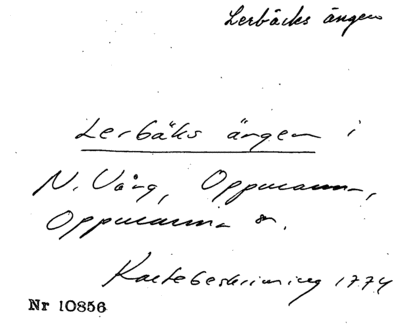 Lerbäcks ängen
Lerbäks ängen i
N. Vång, Oppmanna,
Oppmanna sn.
Kartebeskrivning 1774
Nr 10856